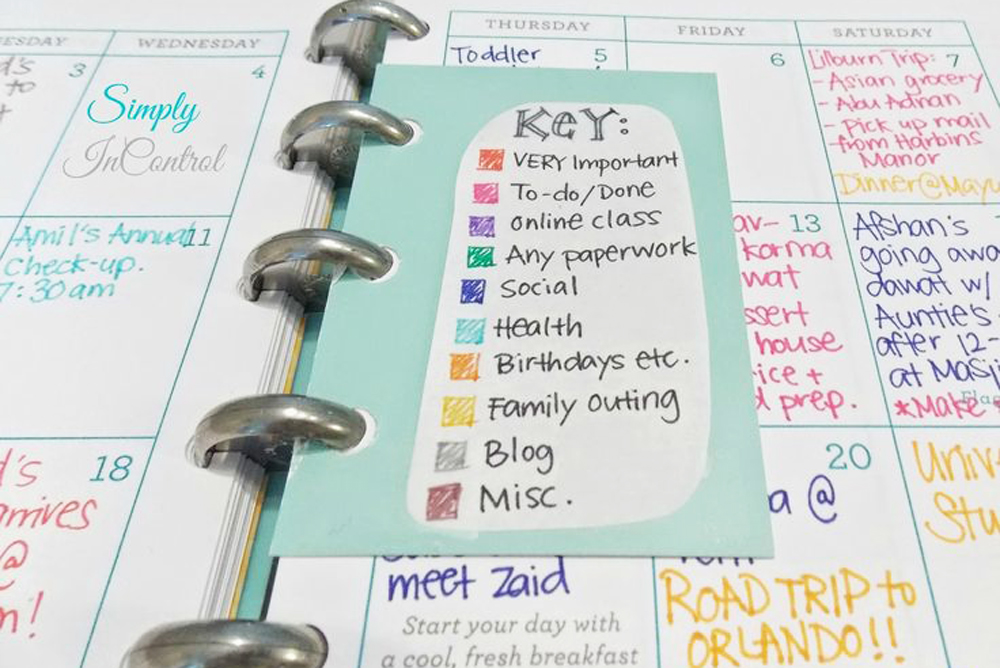 WEDNESDAY
THURSDAY
FRIDAY
SATURDAY
3
to
4
Simply
InControl
Toddler
5
6
Lilburn Trip: 7
- Asian grocery
- Abu Adnan
- Pick up mail
from Harbins
Manor
KEY:
VERY Important
To-do/Done
online class
Any paperwork
Social
Health
Birthdays etc.
Family outing
Blog
Misc.
Amil's Annual 11
Check-up.
7:30am
13
korma
house
prep.
Afshan's
going
dawat w/
Auntie's
after 12-
at
*Make
18
arrives
@
20
@
meet Zaid
Start your day with
a cool, fresh breakfast
ROAD TRIP to
ORLANDO!!